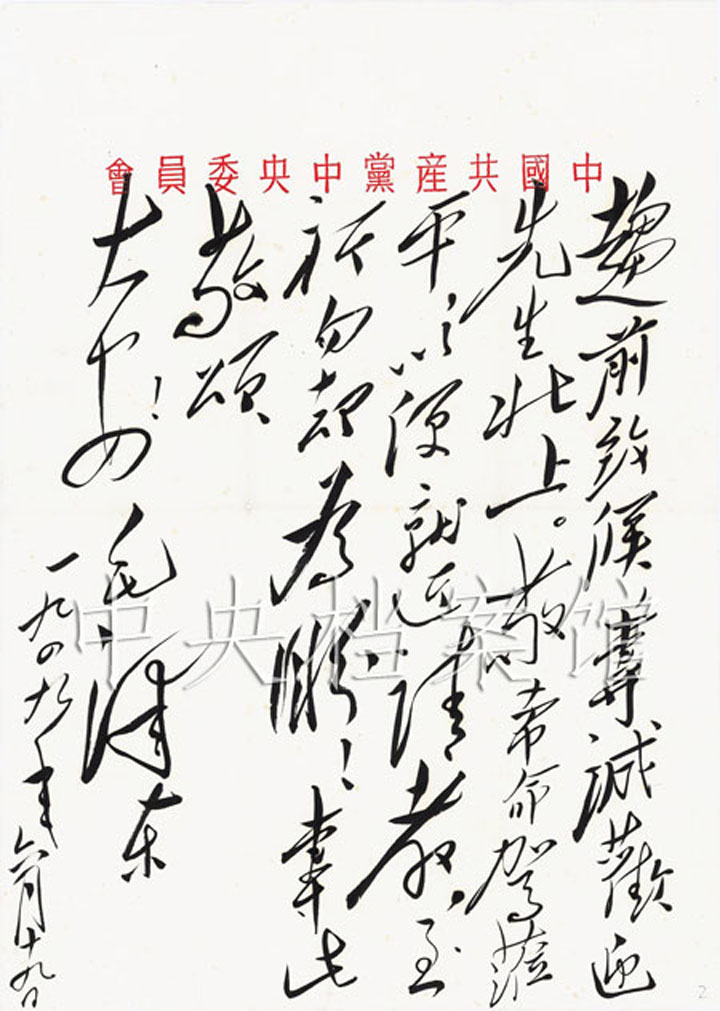 中國共産黨中央委員會
趨前致候專誠歡迎
先生北上。敬希命駕蒞
平,以便就近請教,至
祈勿却為盼!專此
敬頌
大安!
毛澤东
一九四九年六月十九日
中央档案馆
2